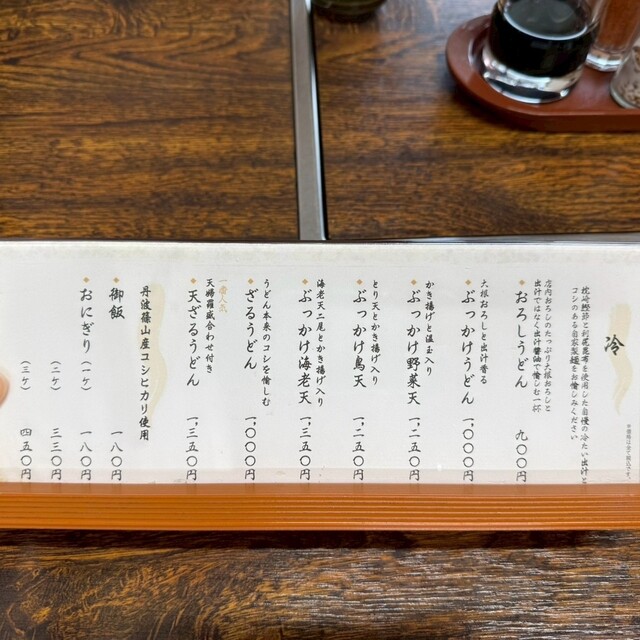 冷
※価格は全て税込です。
枕崎鰹節と利尻昆布を使用した自慢の冷たい出汁と
コシのある自家製麺をお愉しみください
店内おろしのたっぷり大根おろしと
出汁ではなく出汁醤油で愉しむ一杯
おろしうどん 九〇〇円
大根おろしと出汁香る
ぶっかけうどん 一、〇〇〇円
かき揚げと温玉入り
ぶっかけ野菜天 一、二五〇円
とり天とかき揚げ入り
ぶっかけ鳥天 一、二五〇円
海老天二尾とかき揚げ入り
ぶっかけ海老天 一、三五〇円
うどん本来のコシを愉しむ
ざるうどん 一、〇〇〇円
一番人気
天婦羅盛合わせ付き
天ざるうどん 一、三五〇円
丹波篠山産コシヒカリ使用
御飯 一八〇円
おにぎり (一ケ) 一八〇円
(二ケ) 三三〇円
(三ケ) 四五〇円